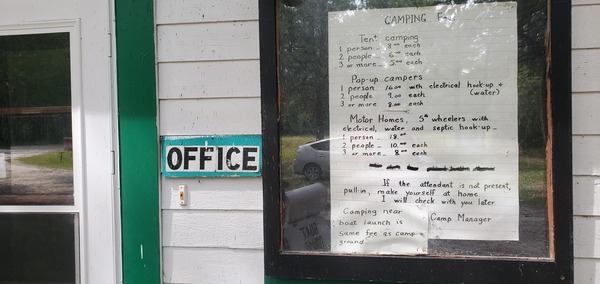 CAMPING Fee
Tent camping
1 person - 8.00 each
2 people - 6.00 each
3 or more - 5.00 each
Pop-up campers
1 person 16.00 with electrical hook-up +
2 people 9.00 each (water)
3 or more 8.00 each
Motor Homes, 5th wheelers with
electrical, water and septic hook-up -
1 person - 18.00
2 people - 10.00 each
3 or more - 8.00 each
If the attendant is not present,
pull-in, make yourself at home.
I will check with you later
Camp Manager
Camping near
boat launch is
same fee as camp-
ground
OFFICE